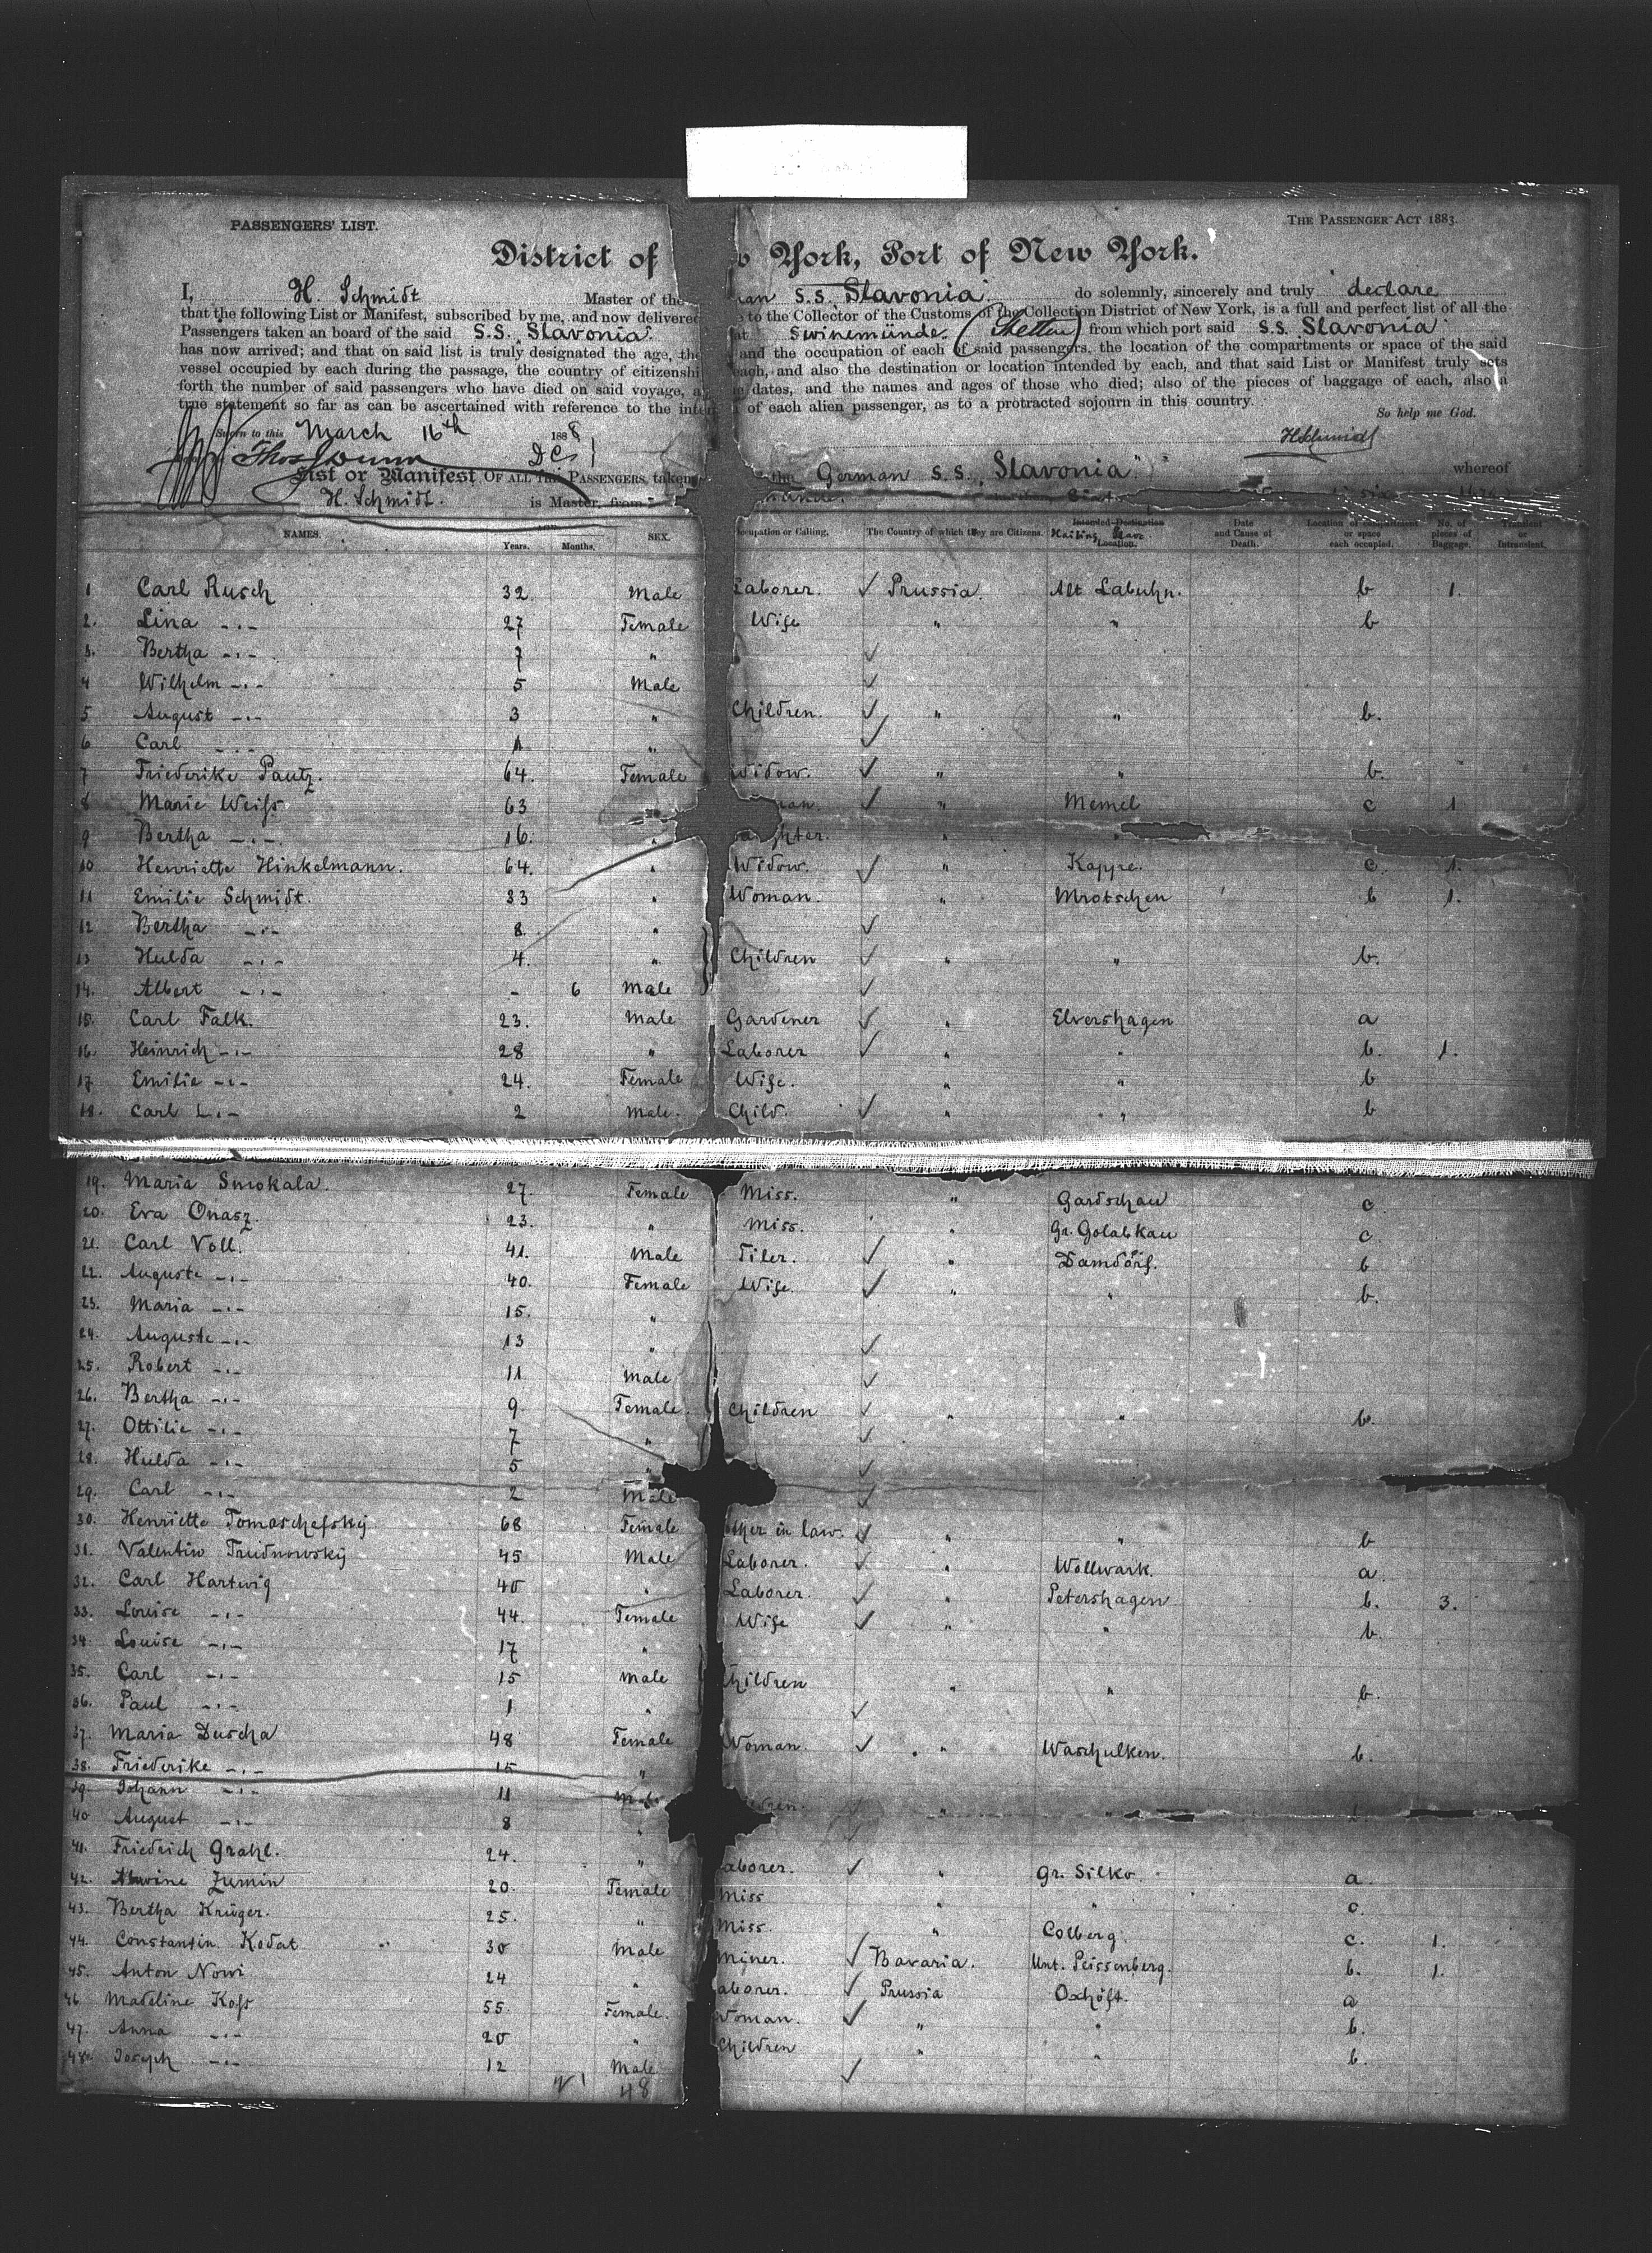 PASSENGERS' LIST. THE PASSENGER ACT 1883.
District of York, Port of New York.
I, H. Schmidt Master of the S.S. "Slavonia" do solemnly, sincerely and truly declare
that the following List or Manifest, subscribed by me, and now delivered to the Collector of the Customs of the Collection District of New York, is a full and perfect list of all the
Passengers taken an board of the said S.S. "Slavonia" at Swinemünde. (Stettin) from which port said S.S. "Slavonia"
has now arrived; and that on said list is truly designated the age, the and the occupation of each of said passengers, the location of the compartments or space of the said
vessel occupied by each during the passage, the country of citizenshi each, and also the destination or location intended by each, and that said List or Manifest truly sets
forth the number of said passengers who have died on said voyage, dates, and the names and ages of those who died; also of the pieces of baggage of each, also a
true statement so far as can be ascertained with reference to the inten of each alien passenger, as to a protracted sojourn in this country.
So help me God.
Sworn to this March 16th 1888 HSchmidt
Thos
List or Manifest OF ALL THE PASSENGERS, taken the German S.S. "Slavonia" whereof
H. Schmidt. is Master, from
NAMES. Years. Months. SEX. ccupation or Calling. The Country of which they are Citizens. Intended Destination Location. Date and Cause of Death. Location of compartment or space each occupied. No. of pieces of Baggage. Transient or Intransient.
1 Carl Rusch 32 Male Laborer. ✓ Prussia. Alt Labuhn. b 1.
2. Lina -.- 27 Female Wife " " b
3. Bertha -.- 7 " ✓
4 Wilhelm -.- 5 Male ✓
5 August -.- 3 " Children. ✓ " " b.
6 Carl -.- 1 " ✓
7 Friederike Pautz. 64. Female Widow. ✓ " " b.
8 Marie Weifs 63 an. ✓ " Memel c 1
9 Bertha -.- 16. " ghter. " "
10 Henriette Hinkelmann. 64. " Widow. ✓ " Kappe. c. 1.
11 Emilie Schmidt. 33 " Woman. " Mrotschen b 1.
12 Bertha -.- 8. " ✓
13 Hulda -.- 4. " Children ✓ " " b.
14. Albert -.- - 6 Male ✓
15. Carl Falk. 23. Male Gardener ✓ " Elvershagen a
16. Heinrich -.- 28 " Laborer ✓ " " b. 1.
17 Emilie -.- 24. Female Wife. " " b
18. Carl L. -.- 2 Male. Child. ✓ " " b
19. Maria Smokala. 27. Female Miss. " Gardschau c
20. Eva Onasz. 23. " Miss. " Gr. Golabkau c
21. Carl Voll. 41. Male Tiler. ✓ " Damdörf. b
22. Auguste -.- 40. Female Wife ✓ " " b.
23. Maria -.- 15. "
24. Auguste -.- 13 " ✓
25. Robert -.- 11 Male ✓
26. Bertha -.- 9. Female. Children ✓ " " b.
27. Ottilie -.- 7 " ✓
28. Hulda -.- 5 " ✓
29. Carl -.- 2 Male ✓
30. Henriette Tomaschefský 68 Female other in law. ✓ " " b
31. Valentin Trudnowský 45 Male Laborer. ✓ " Wollwark. a.
32. Carl Hartwig 40 " Laborer. ✓ " Petershagen b. 3.
33. Louise -.- 44. Female Wife ✓ " " b.
34. Louise -.- 17 "
35. Carl -.- 15 Male Children " " b.
36. Paul -.- 1 " ✓
37. Maria Duscha 48 Female Woman. ✓ " Waschulken. b.
38. Friederike -.- 15 "
39. Johann -.- 11 " "
40 August -.- 8 "
41. Friedrich Grahl. 24. " aborer. ✓ " Gr. Silko. a.
42. Zumin 20. Female Miss " " c.
43. Bertha Krüger. 25. " Miss. " Colberg. c. 1.
44. Constantin Kodat 30 Male Miner. ✓ Bavaria. Unt. Peissenberg. b. 1.
45. Anton Nowi 24 " aborer. ✓ Prussia Oxhöft. a
46 Madeline Kofs 55 Female. Woman. ✓ " " b.
47. Anna -.- 20 " Children " " b.
48. Joseph -.- 12 Male ✓
48